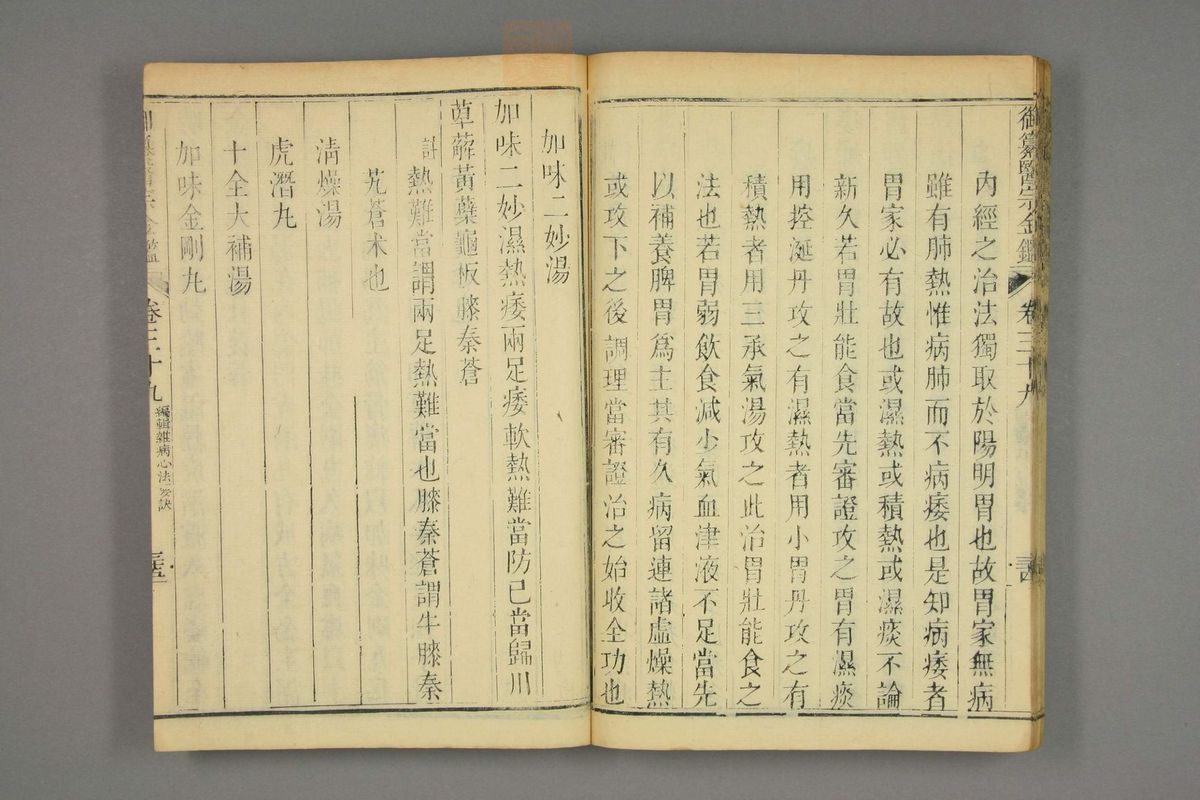 御纂醫宗金鑑 卷三十九
內經之治法獨取於陽明胃也故胃家無病
雖有肺熱惟病肺而不病痿也是知病痿者
胃家必有故也或濕熱或積熱或濕痰不論
新久若胃壯能食當先審證攻之胃有濕痰
用控涎丹攻之有濕熱者用小胃丹攻之有
積熱者用三承氣湯攻之此治胃壯能食之
法也若胃弱飲食減少氣血津液不足當先
以補養脾胃爲主其有久病留連諸虛燥熱
或攻下之後調理當審證治之始收全功也
加味二妙湯
加味二妙濕熱痿兩足痿軟熱難當防已當歸川
萆薢黃蘗龜板膝秦蒼
註熱難當謂兩足熱難當也膝秦蒼謂牛膝秦
艽蒼术也
清燥湯
虎潛丸
十全大補湯
加味金剛丸
卷三十九 編輯雜病心法要訣